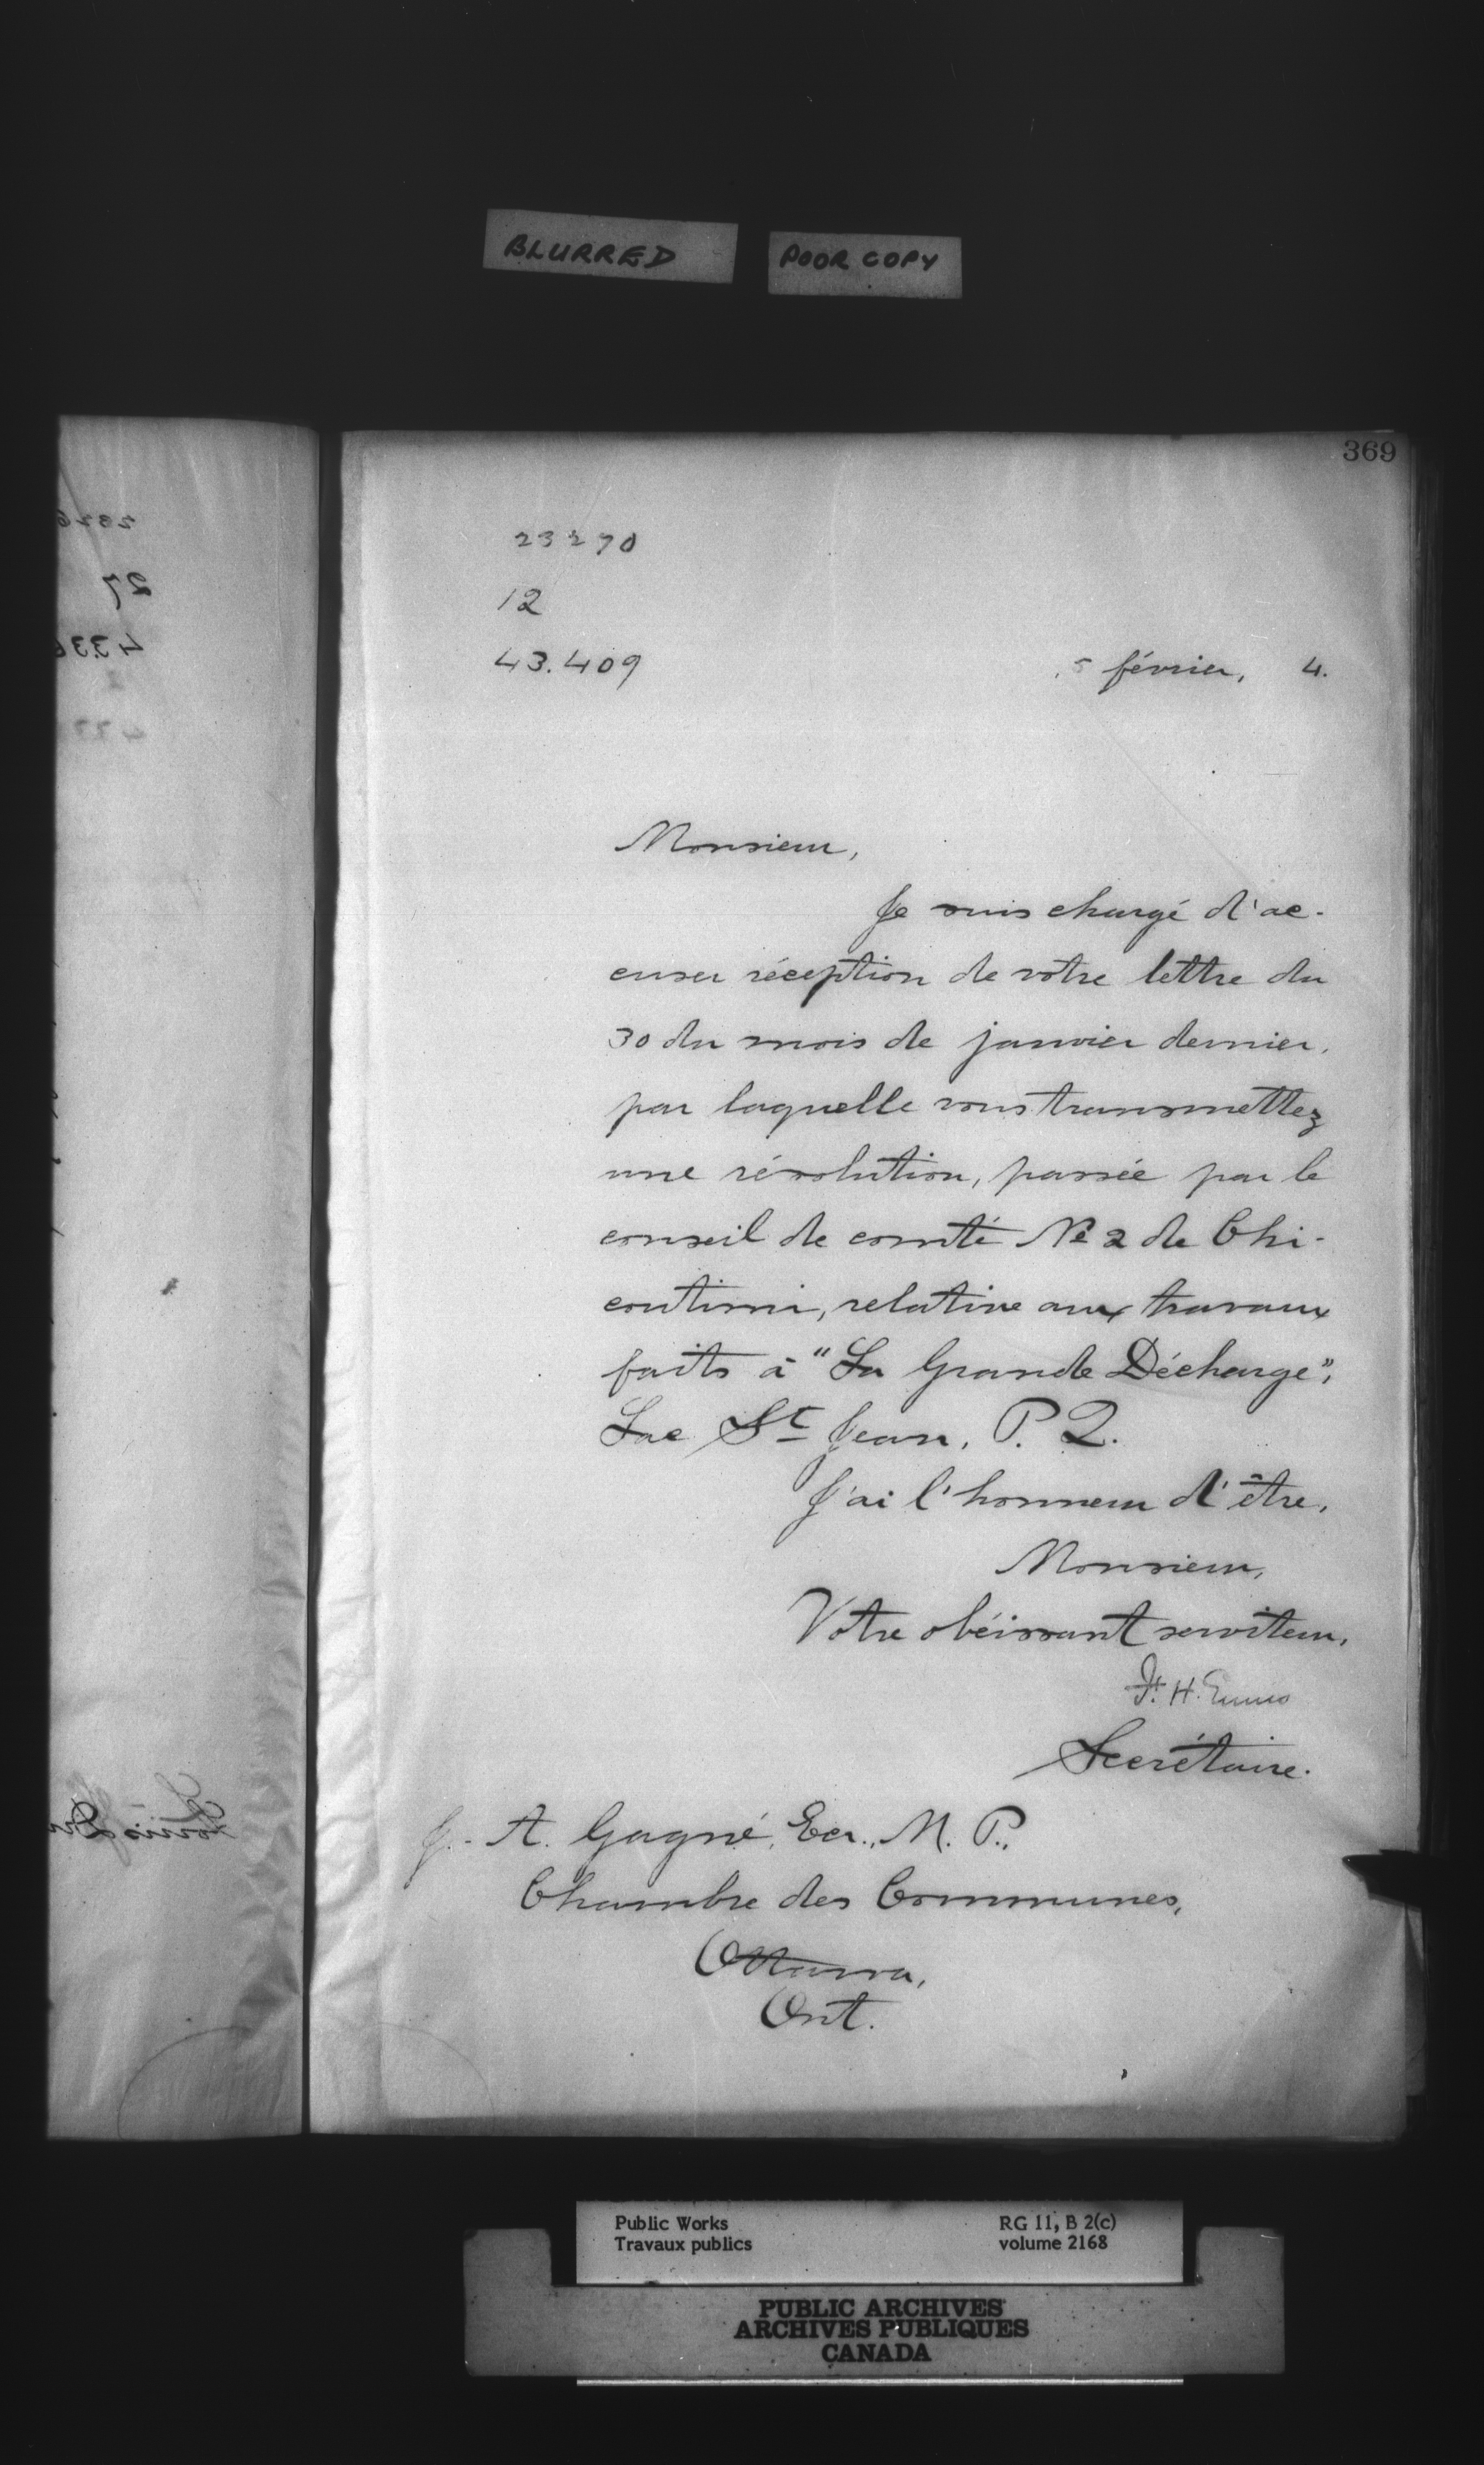 BLURRED
POOR COPY
369
23270
12
43.409
5 février, 4.
Monsieur,
Je suis chargé d'ac-
cuser réception de votre lettre du
30 du mois de janvier dernier,
par laquelle vous transmettez
une résolution, passée par le
conseil de comté No 2 de Chi-
coutimi, relative aux travaux
faits à "La Grande Décharge",
Lac St Jean, P. Q.
J'ai l'honneur d'être,
Monsieur,
Votre obéissant serviteur,
F. H. Ennis
Secrétaire.
J.-A. Gagné, Ecr., M. P.,
Chambre des Communes,
Ottawa,
Ont.
27
Public Works
Travaux publics
RG 11, B 2(c)
volume 2168
PUBLIC ARCHIVES
ARCHIVES PUBLIQUES
CANADA